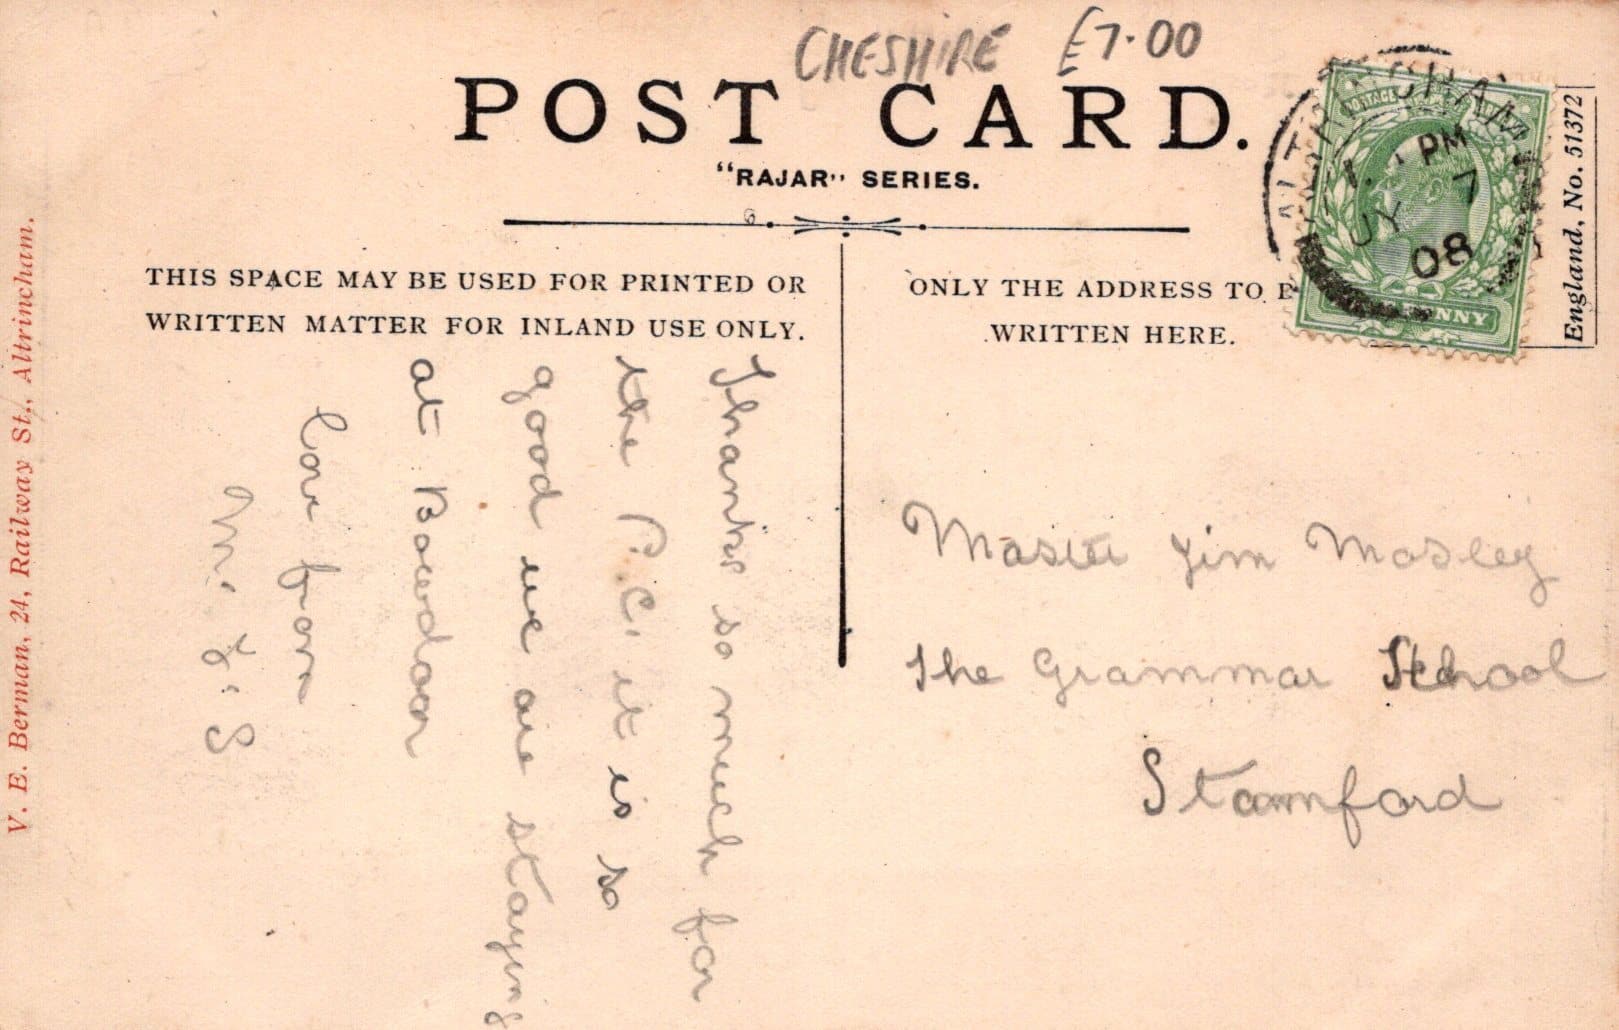 CHESHIRE £7.00
POST CARD.
"RAJAR" SERIES.
6
THIS SPACE MAY BE USED FOR PRINTED OR
WRITTEN MATTER FOR INLAND USE ONLY.
ONLY THE ADDRESS TO
WRITTEN HERE.
ALTRINCHAM
PM
JY 7
08
England, No. 51372
V. E. Berman, 24, Railway St., Altrincham.
Thanks so much for
the P.C. it is so
good we are staying
at Bowdon
love from
M. L. S
Master Jim Mosley
The Grammar School
Stamford